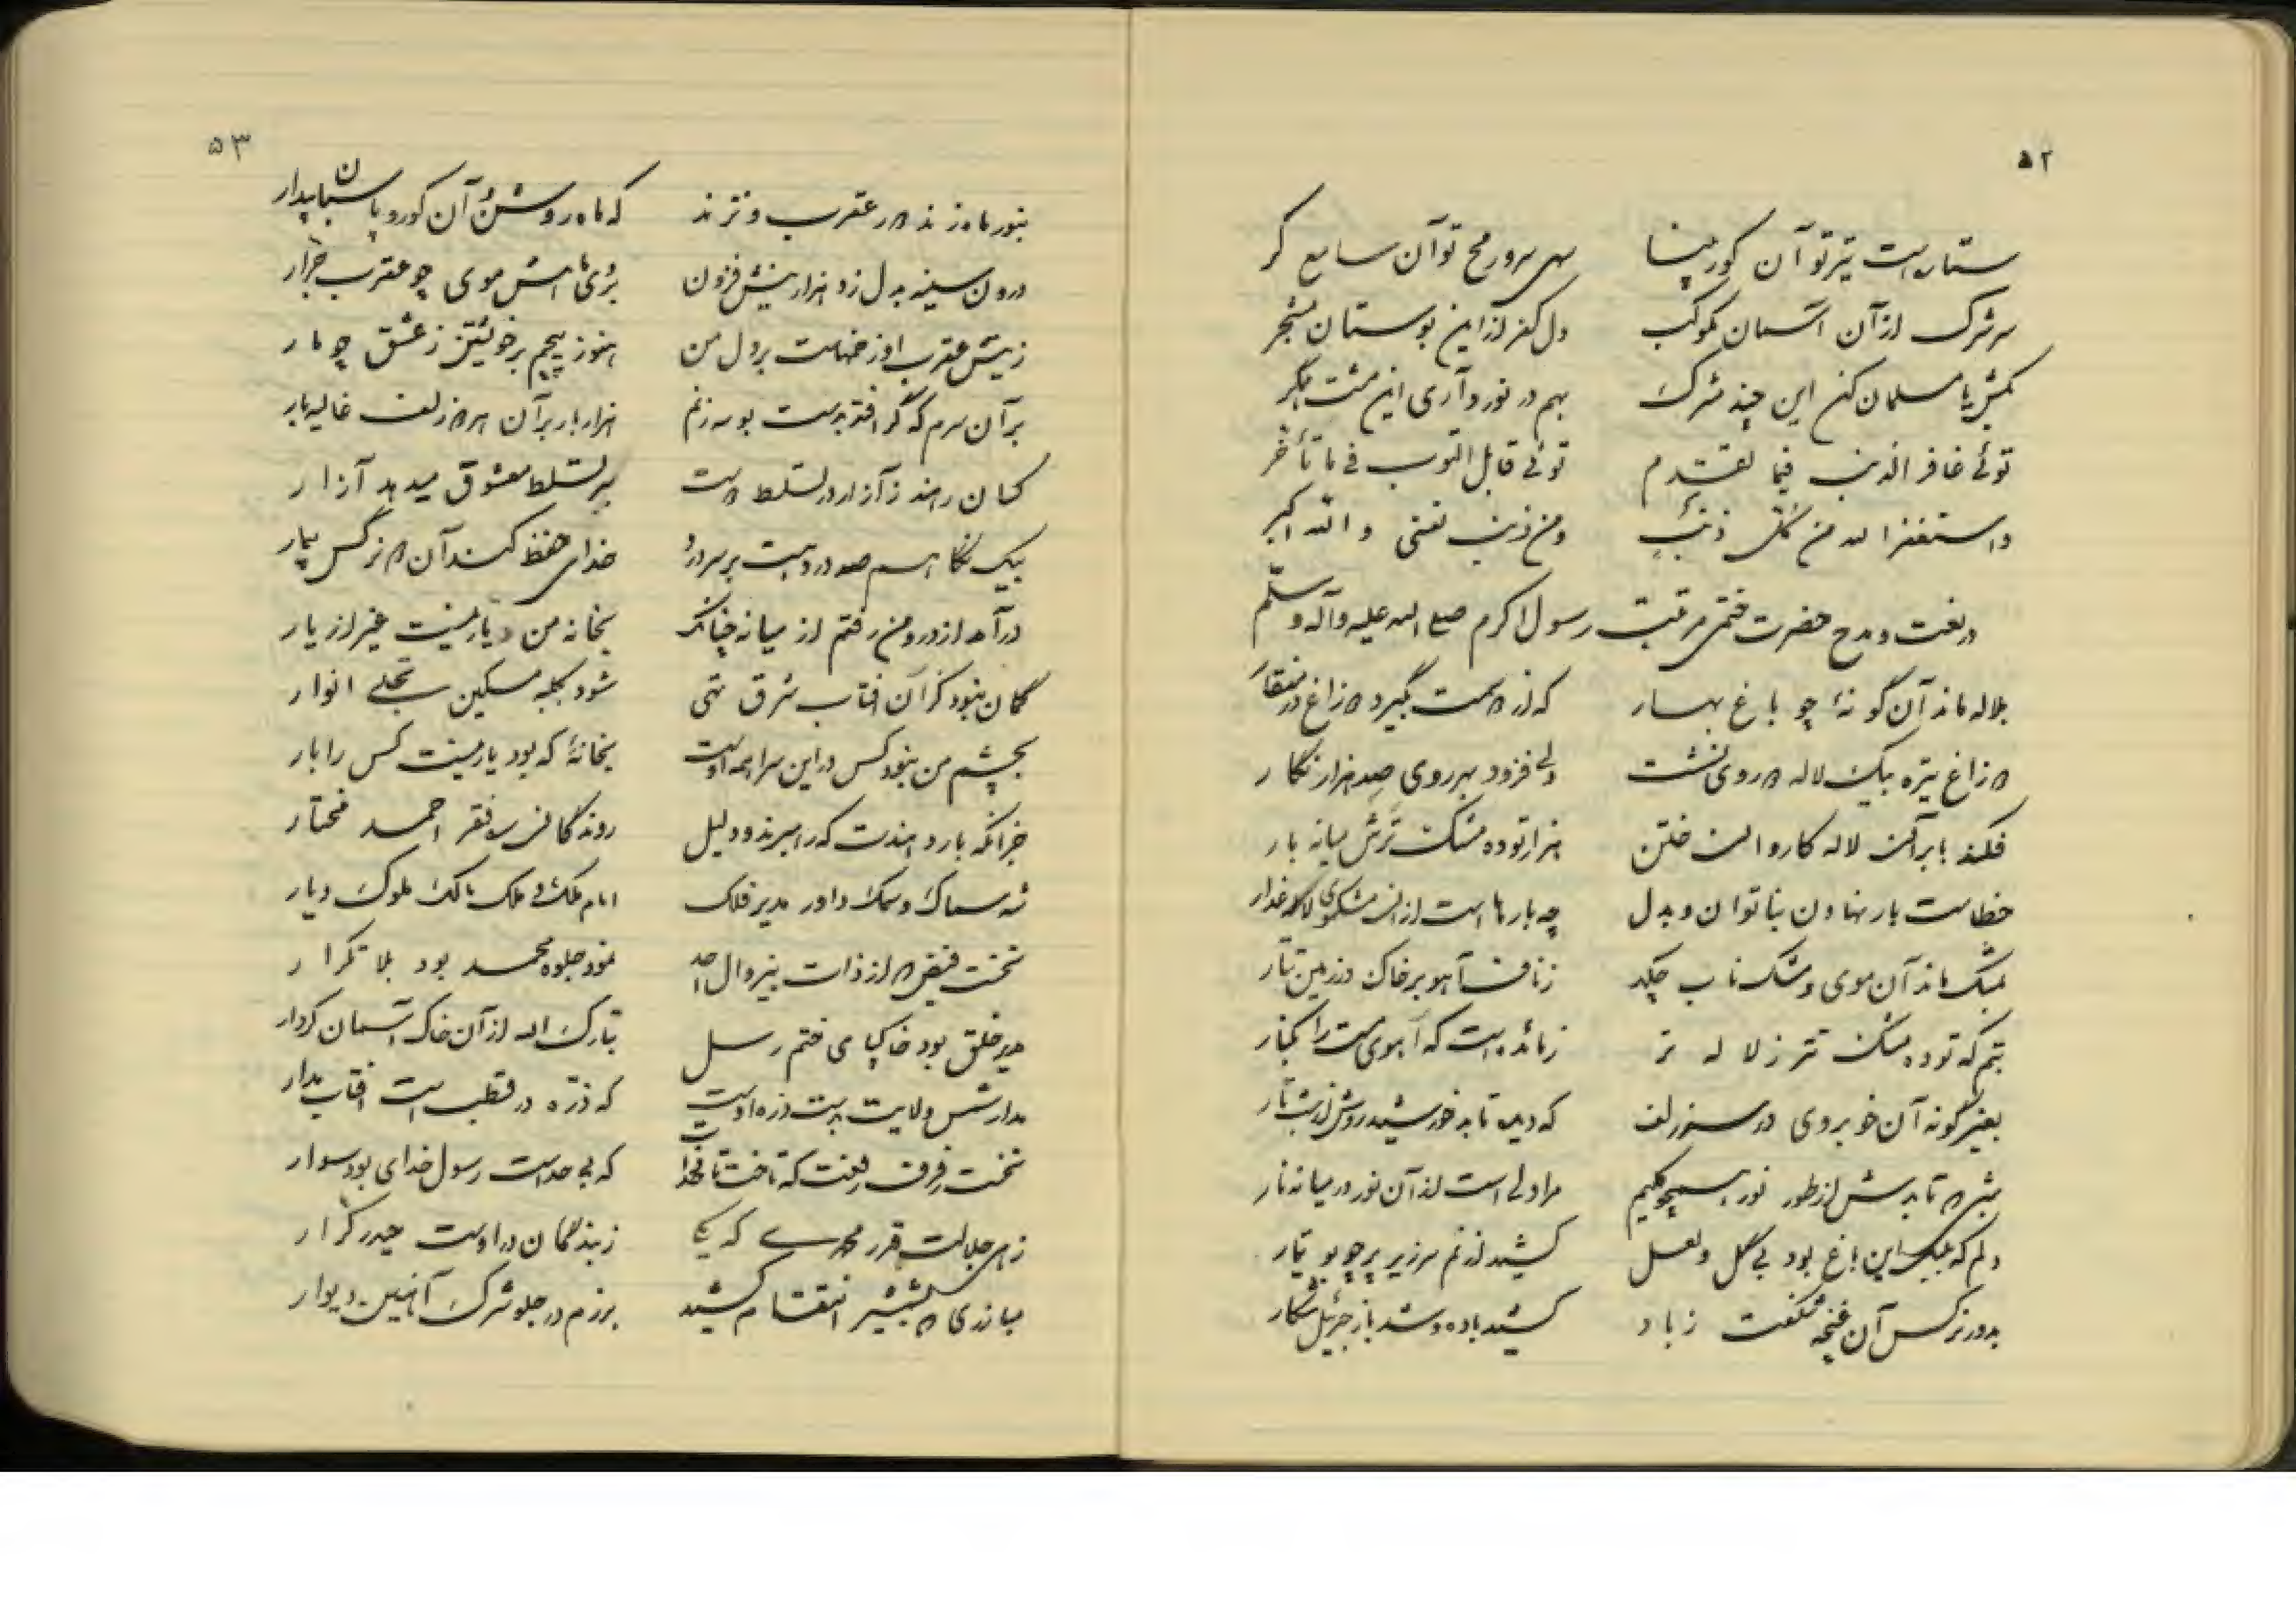 ۵۲
ستاره است تیر تو آن کور پنا سهی سرو رمح تو آن سایع کر
سر شرک از آن آسمان مکوکب دل کفر از این بوستان مشجر
بکش یا مسلمان کن این چند مشرک بهم در نورد آری این مشت
توئی غافر الذنب فیما تقدم توئی قابل التوب فی ما تأخر
و استغفر الله من کل ذنب و من ذنب نفسی و الله اکبر
در نعت و مدح حضرت ختمی مرتبت رسول اکرم صلی الله علیه وآله وسلم
بلاله ماند آن گونهٔ چو باغ بهار که از دست بگیرد دو زاغ در منقار
دو زاغ تیره بیک لاله دو روی نشست ولی فزود بهر روی صد هزار نگار
فکند بار بر آن لاله کاروان ختن هزار توده مشک ترش میانه بار
خطاست بار نهادن بناتوان و بدل چه بارها است از آن مشکموی لاله عذار
بمشک ماند آن موی و مشک ناب چکد ز ناف آهو بر خاک در زمین تتار
بتم که توده مشک تتر ز لاله تر زمانده است که آهوی مست را بکنار
بغیر گونه آن خوبروی در سر زلف که دیده تابد خورشید روشن از شب تار
بشر دو تابدش از طور نور همچو کلیم مرا دلی است از آن نور در میانه نار
دلم که بلبل این باغ بود بی گل و لعل کشید از غم سر زیر پر چو بوتیمار
بدور نرگس آن غنچه شکفت زباد کشید باده و شد باز جبرئیل شکار
۵۳
بنور ماه زند در عقرب و نژند که ماه روشن آن کور و پاسبان بیدار
درون سینه بدل زد هزار نیش فزون بروی ماهش موی چو عقرب جرار
ز نیش عقرب او زخمهاست بر دل من هنوز پیچم بر خویشتن ز عشق چو مار
بر آن سرم که گر افتد بدست بوسه زنم هزار بار بر آن هر دو زلف غالیه بار
کسان رهند ز آزار در تسلط دست بر تسلط معشوق میدهد آزار
بیک نگاهم صد درد هست بر سر درد خدای حفظ کند آن دو نرگس بیمار
در آمد از در و من رفتم از میانه چنانک بخانه من دیار نیست غیر از یار
گمان نبود کز آن افتاب شرق تنی شود بکلبه مسکین تجلی انوار
بچشم من نبود کس در این سرا همه اوست بخانهٔ که بود یار نیست کس را بار
جز آنکه بار دهندت که رهبرند و دلیل روندگان ره فقر احمد مختار
شه سماک و سمک داور مدیر فلک امام ملک و ملک مالک ملوک دیار
نخست فیض از ذات بیزوال احد نمود جلوه محمد بود بلا تکرار
میر خلق بود خاکپای ختم رسل تبارک الله از آن خاک آسمان کردار
مدار شمس ولایت بدست ذره اوست که ذره در قطب است افتاب مدار
نخست رفرف رفعت که تاخت تا بخدا که بی حد است رسول خدای بود سوار
زهی جلالت قدر محمدی که یکی ز بندگان در اوست حیدر کرار
مبارزی که شمشیر انتقام کشید برزم در جلو شرک آهنین دیوار